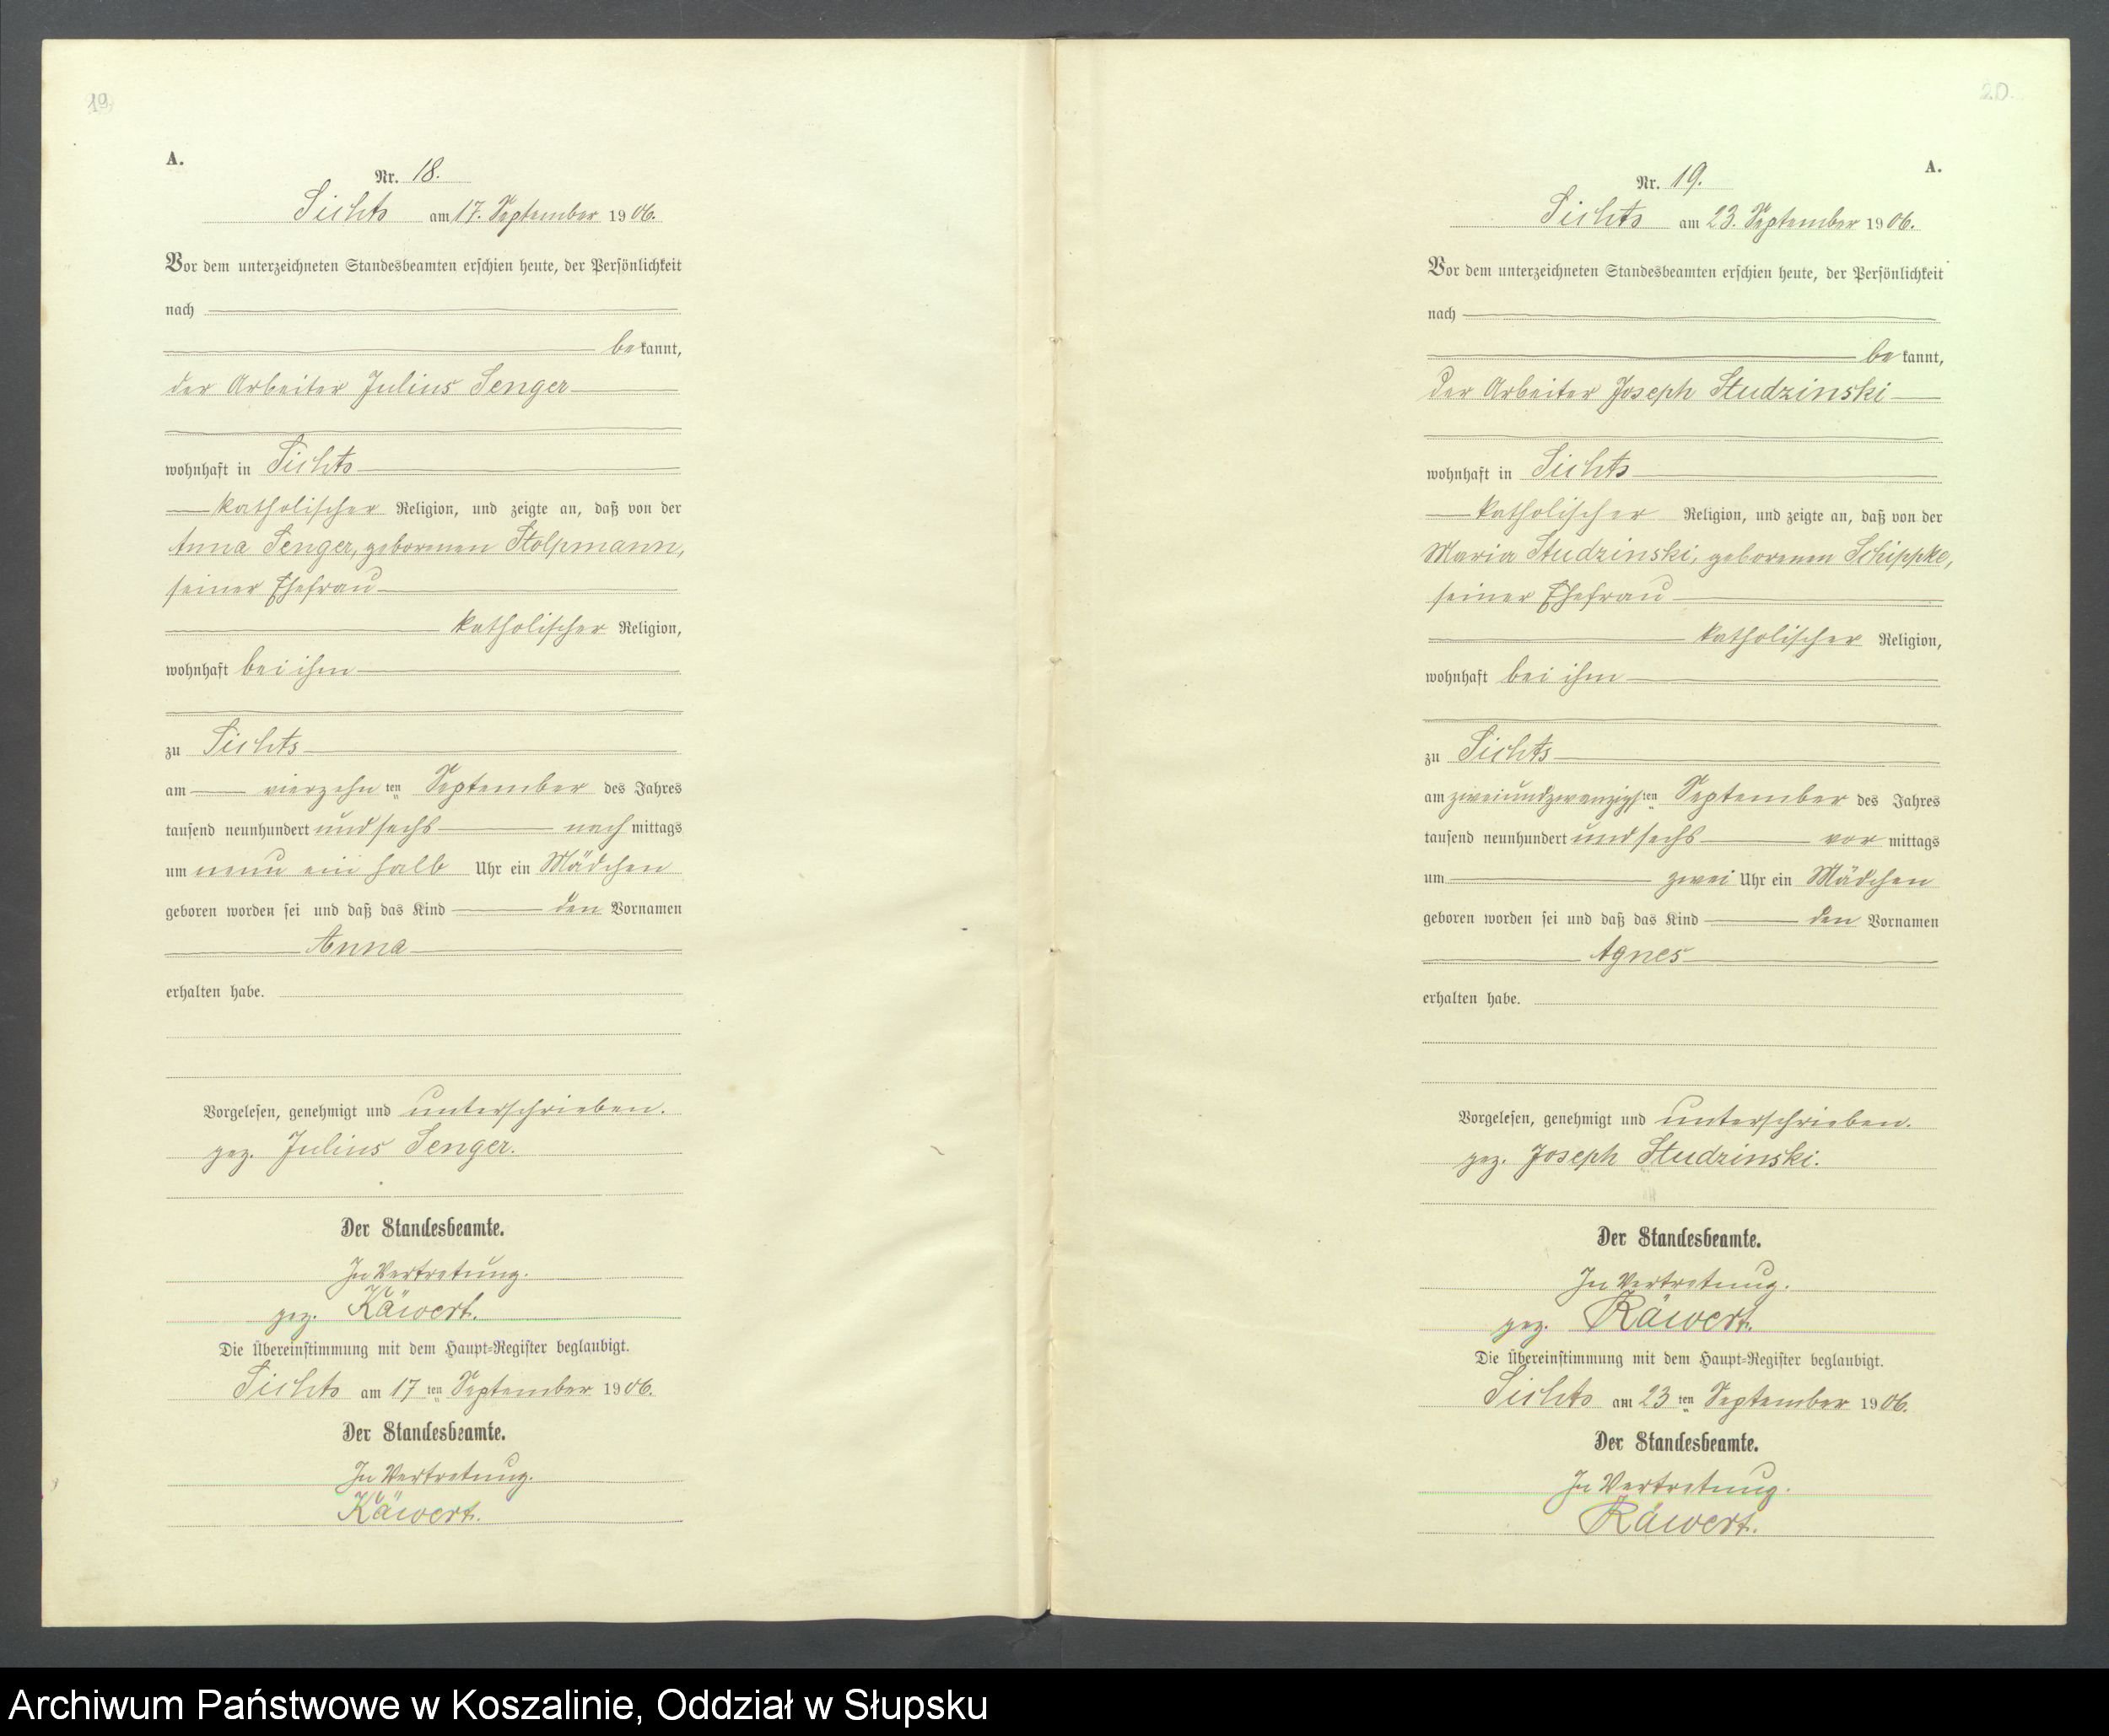 19
A.
Nr. 18.
Sichts am 17. September 1906.
Vor dem unterzeichneten Standesbeamten erschien heute, der Persönlichkeit
nach
bekannt,
der Arbeiter Julius Senger
wohnhaft in Sichts
katholischer Religion, und zeigte an, daß von der
Anna Senger, geborenen Stolpmann,
seiner Ehefrau
katholischer Religion,
wohnhaft bei ihm
zu Sichts
am vierzehnten September des Jahres
tausend neunhundert und sechs nachmittags
um neun ein halb Uhr ein Mädchen
geboren worden sei und daß das Kind den Vornamen
Anna
erhalten habe.
Vorgelesen, genehmigt und unterschrieben.
gez. Julius Senger.
Der Standesbeamte.
In Vertretung.
gez. Käwert.
Die Übereinstimmung mit dem Haupt-Register beglaubigt.
Sichts am 17ten September 1906.
Der Standesbeamte.
In Vertretung.
Käwert.
20.
A.
Nr. 19.
Sichts am 23. September 1906.
Vor dem unterzeichneten Standesbeamten erschien heute, der Persönlichkeit
nach
bekannt,
der Arbeiter Joseph Studzinski
wohnhaft in Sichts
katholischer Religion, und zeigte an, daß von der
Maria Studzinski, geborenen Schippke,
seiner Ehefrau
katholischer Religion,
wohnhaft bei ihm
zu Sichts
am zweiundzwanzigsten September des Jahres
tausend neunhundert und sechs vormittags
um zwei Uhr ein Mädchen
geboren worden sei und daß das Kind den Vornamen
Agnes
erhalten habe.
Vorgelesen, genehmigt und unterschrieben.
gez. Joseph Studzinski.
Der Standesbeamte.
In Vertretung.
gez. Käwert.
Die Übereinstimmung mit dem Haupt-Register beglaubigt.
Sichts am 23ten September 1906.
Der Standesbeamte.
In Vertretung.
Käwert.
Archiwum Państwowe w Koszalinie, Oddział w Słupsku